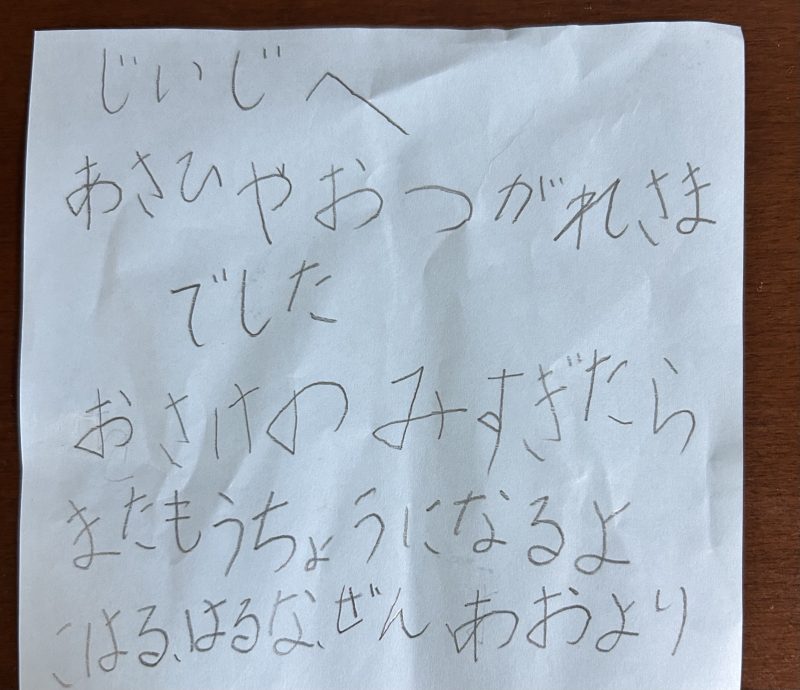 じいじへ
あさひやおつがれさま
でした
おさけのみすぎたら
またもうちょうになるよ
こはる、はるな、ぜん、あおより